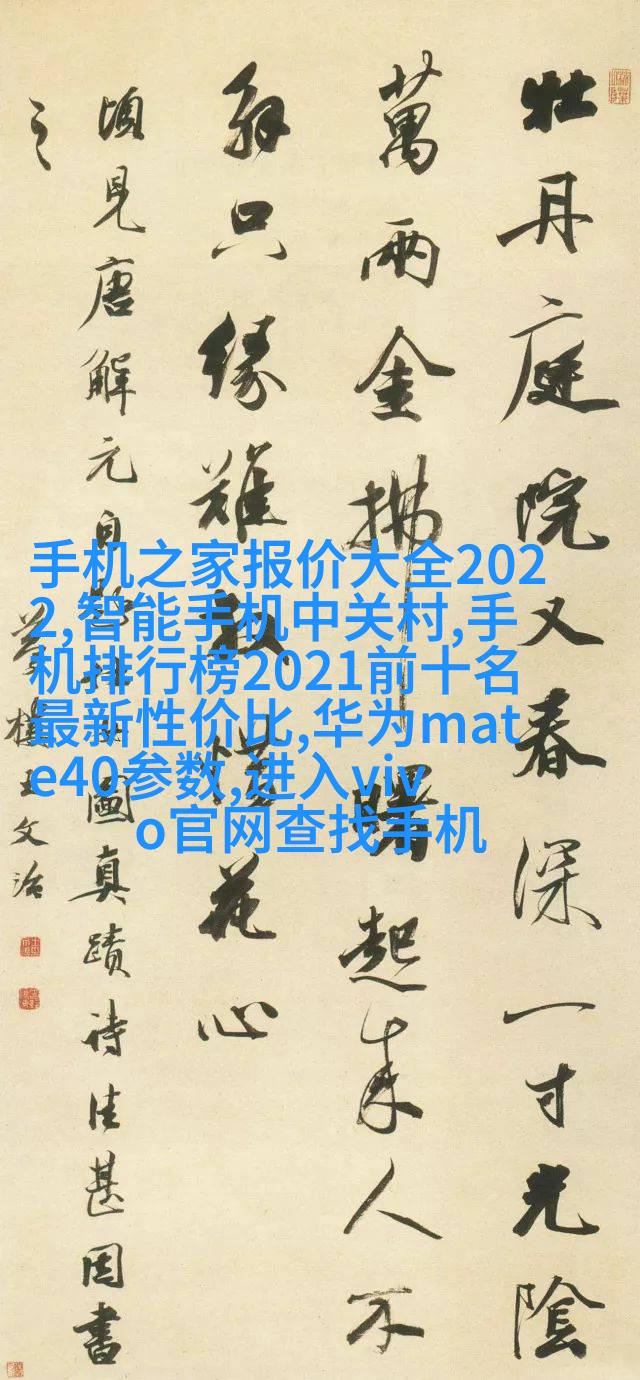 牡丹庭院又春深一寸光陰
萬兩金拂曙起來人不
解只緣難放惜花心
頃見唐解元自圖真蹟詩佳甚因書
之
夢樓王文治
手机之家报价大全202
2,智能手机中关村,手
机排行榜2021前十名
最新性价比,华为mat
e40参数,进入viv
o官网查找手机